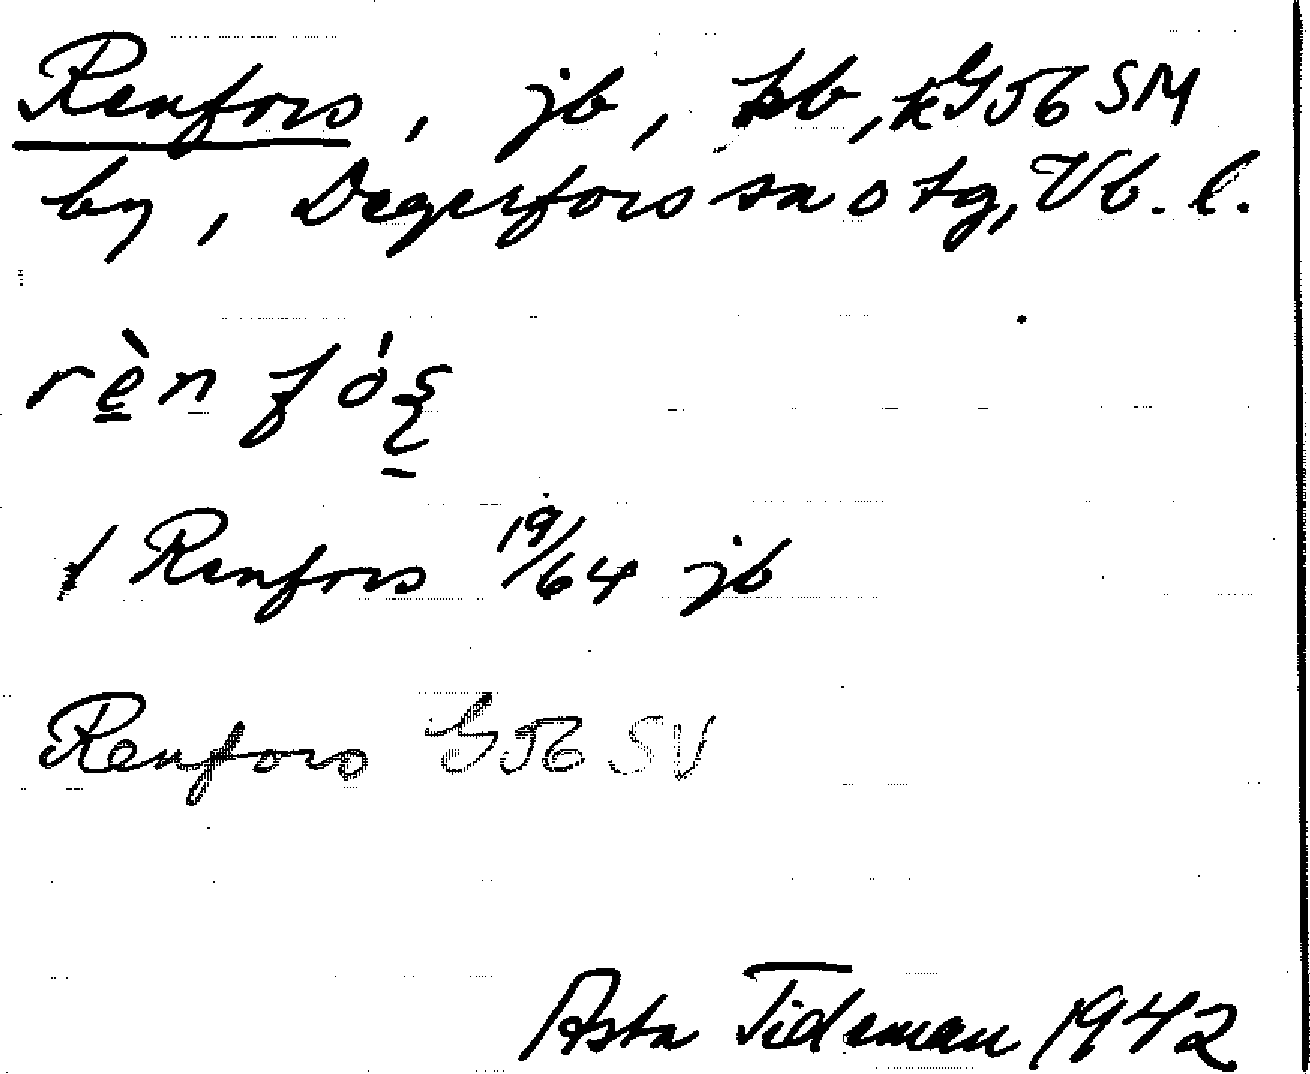 Renfors, jb, pb, kGJ6 SM
by, Degerfors sn o tg, Vb. l.
rèn fóṣ
/ Renfors 19/64 jb
Renfors GJ6 SV
Asta Tideman 1942